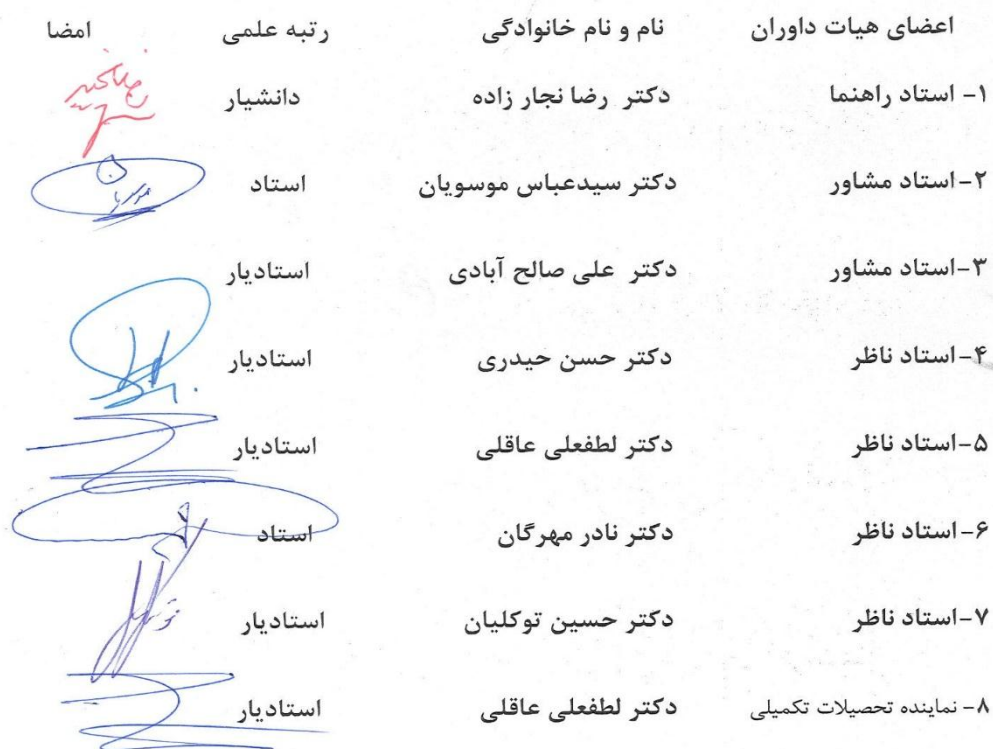 اعضای هیات داوران نام و نام خانوادگی رتبه علمی امضا
۱- استاد راهنما دکتر رضا نجار زاده دانشیار
۲-استاد مشاور دکتر سیدعباس موسویان استاد
۳-استاد مشاور دکتر علی صالح آبادی استادیار
۴-استاد ناظر دکتر حسن حیدری استادیار
۵-استاد ناظر دکتر لطفعلی عاقلی استادیار
۶-استاد ناظر دکتر نادر مهرگان استاد
۷-استاد ناظر دکتر حسین توکلیان استادیار
۸- نماینده تحصیلات تکمیلی دکتر لطفعلی عاقلی استادیار